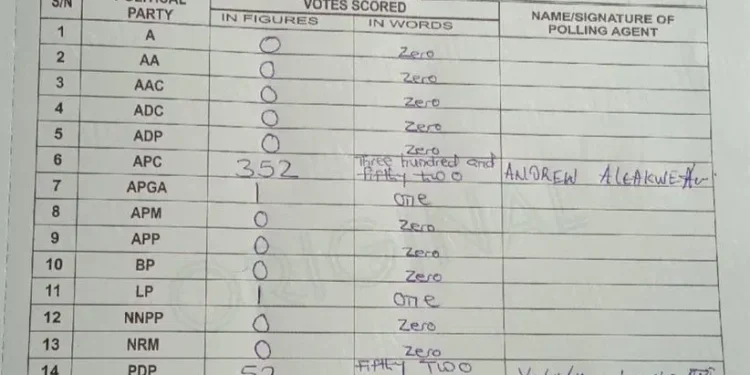 S/N POLITICAL PARTY VOTES SCORED NAME/SIGNATURE OF POLLING AGENT
IN FIGURES IN WORDS
1 A 0 Zero
2 AA 0 Zero
3 AAC 0 Zero
4 ADC 0 Zero
5 ADP 0 Zero
6 APC 352 Three hundred and fifty two ANDREW
7 APGA 1 one
8 APM 0 Zero
9 APP 0 Zero
10 BP 0 Zero
11 LP 1 one
12 NNPP 0 Zero
13 NRM 0 Zero
14 PDP 52 Fifty Two
ORIGINAL